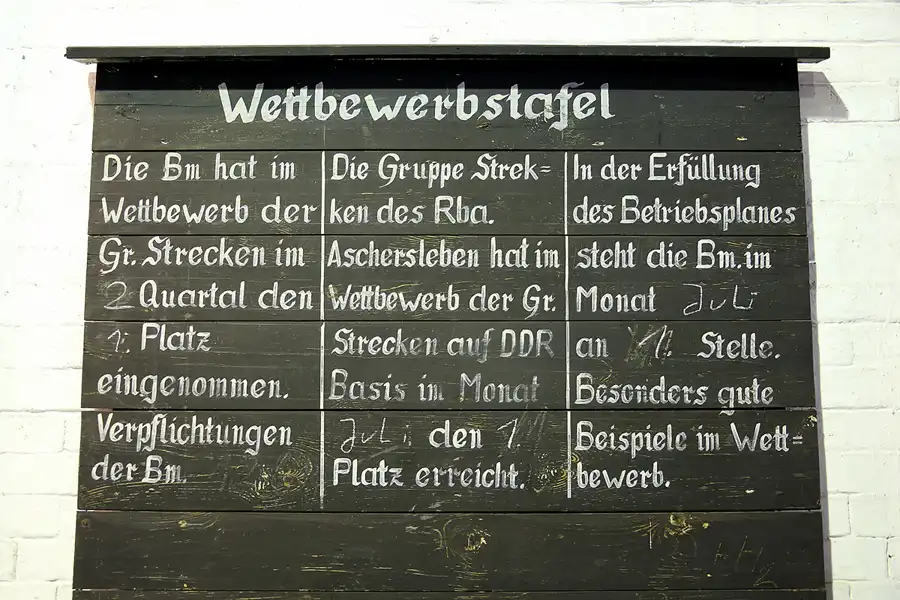 Wettbewerbstafel
Die Bm hat im
Wettbewerb der
Gr. Strecken im
2 Quartal den
1. Platz
eingenommen.
Verpflichtungen
der Bm.
Die Gruppe Strek=
ken des Rba.
Aschersleben hat im
Wettbewerb der Gr.
Strecken auf DDR
Basis im Monat
Juli den 1.
Platz erreicht.
In der Erfüllung
des Betriebsplanes
steht die Bm. im
Monat Juli
an 1. Stelle.
Besonders gute
Beispiele im Wett=
bewerb.